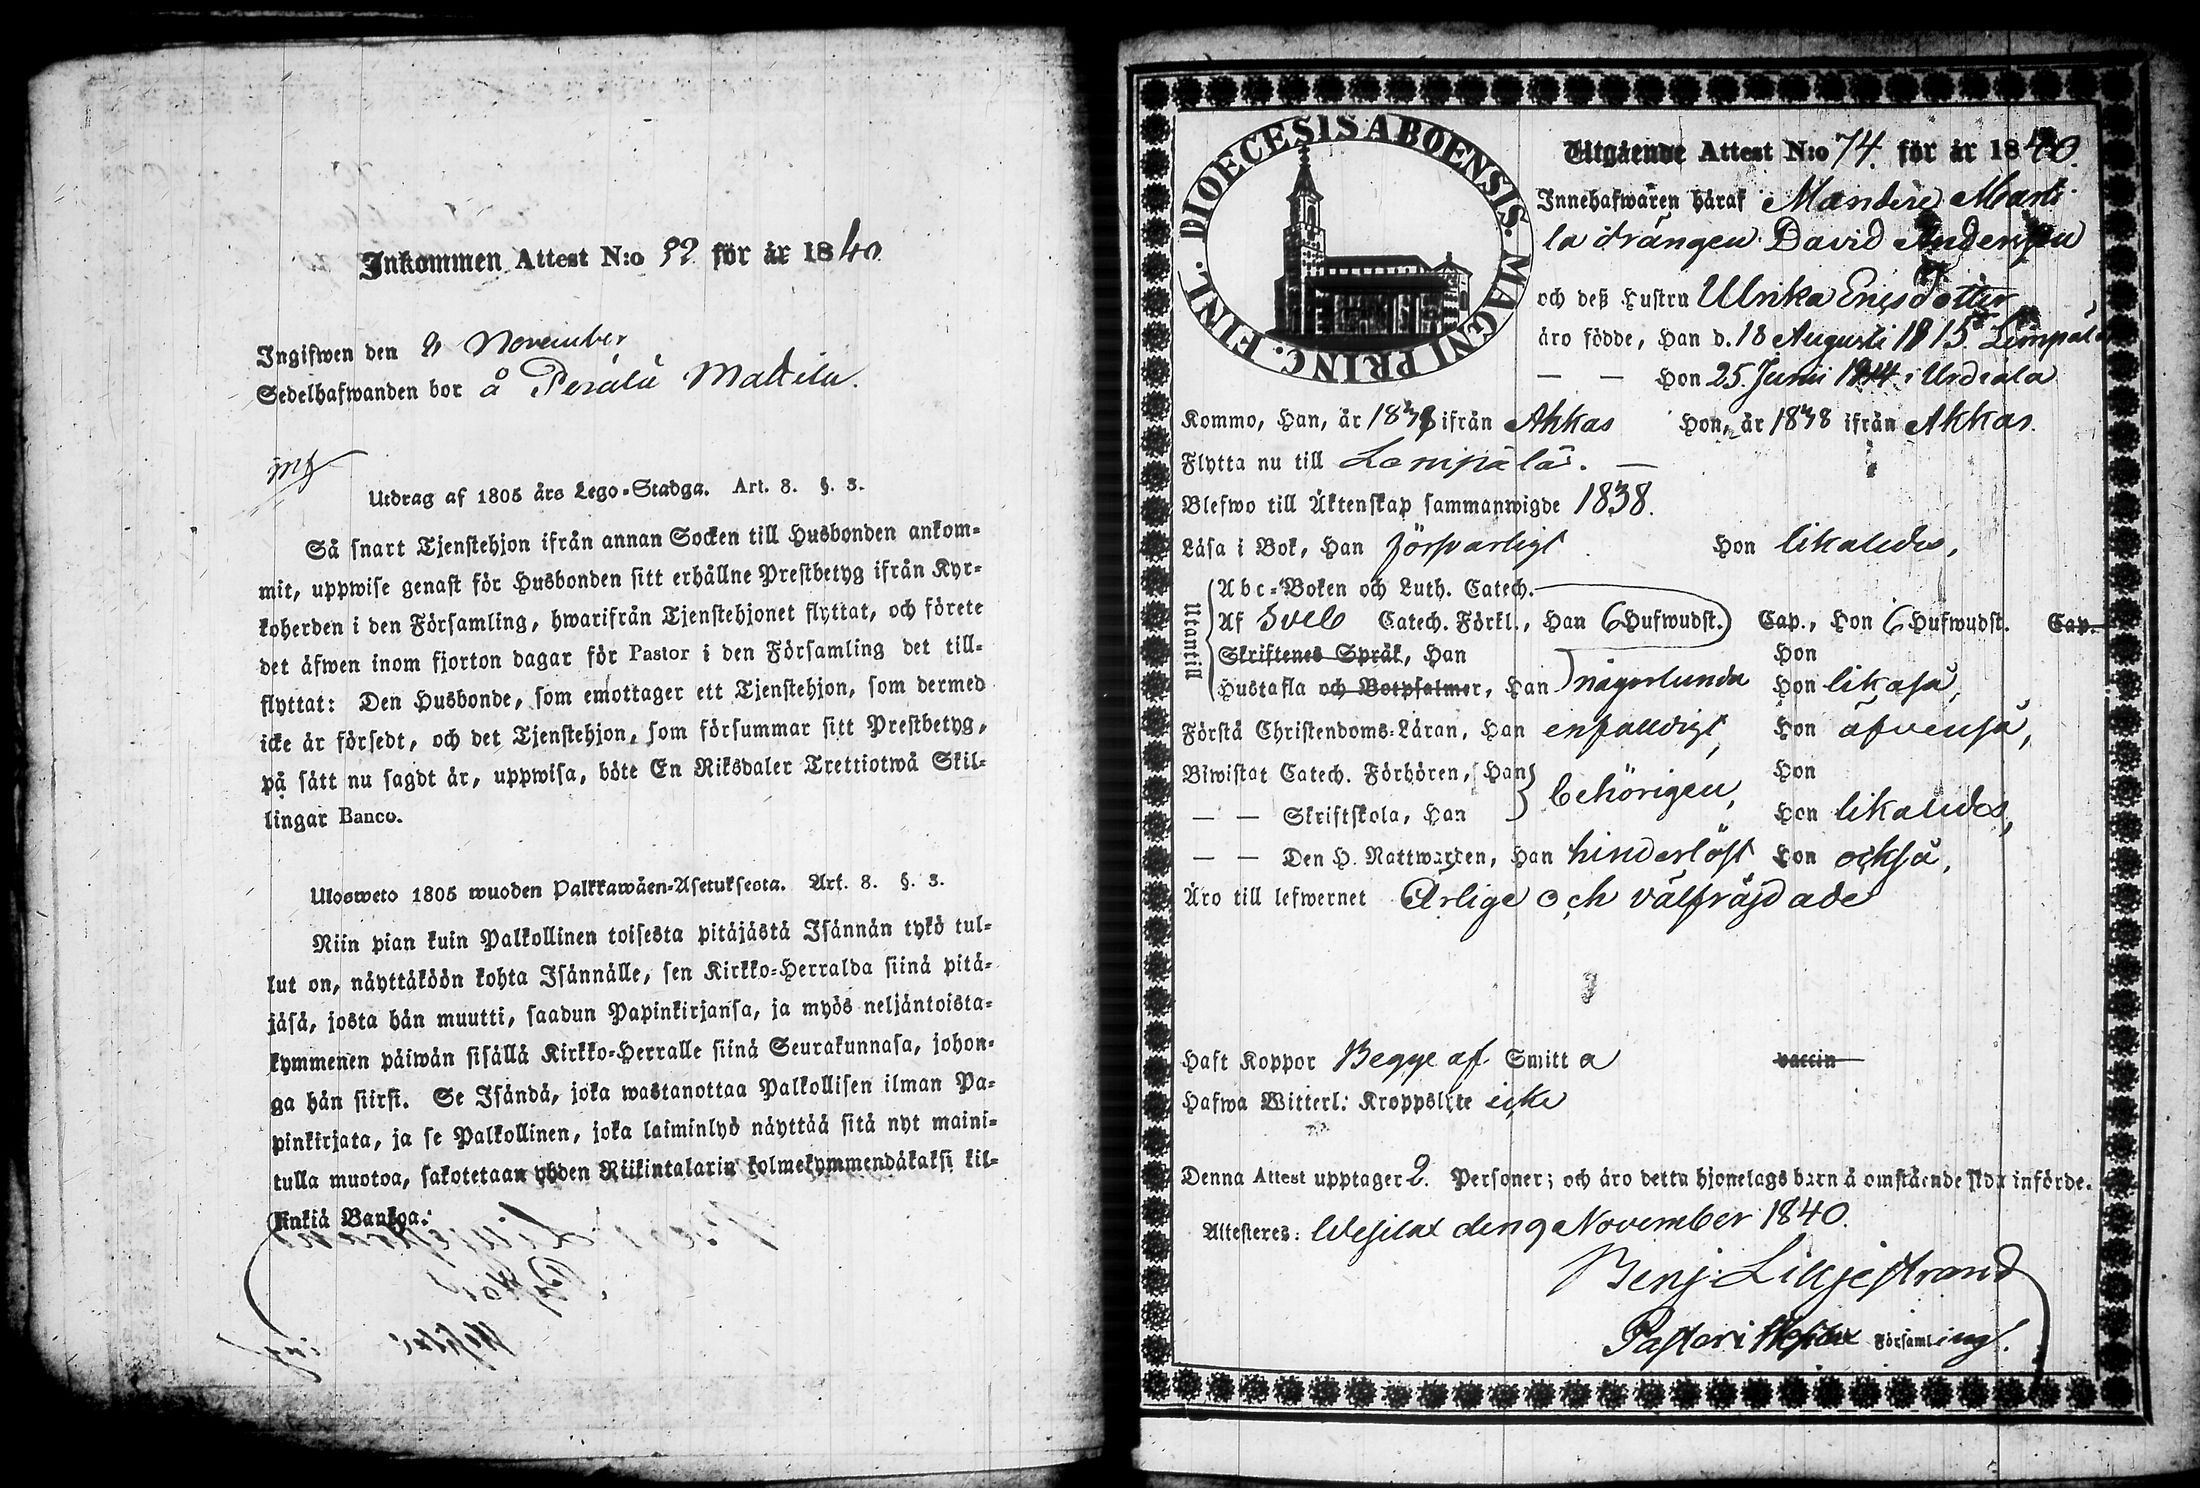 Inkommen Attest N:o 92 för år 1840
Ingifwen den 9 November
Sedelhafwanden bor å Perälä Mattila.
Utdrag af 1805 års Lego-Stadga. Art. 8. §. 3.
Så snart Tjenstehjon ifrån annan Socken till Husbonden ankom-
mit, uppwise genast för Husbonden sitt erhållne Prestbetyg ifrån Kyr-
koherden i den Församling, hwarifrån Tjenstehjonet flyttat, och förete
det äfwen inom fjorton dagar för Pastor i den Församling det till-
flyttat: Den Husbonde, som emottager ett Tjenstehjon, som dermed
icke är försedt, och det Tjenstehjon, som försummar sitt Prestbetyg,
på sätt nu sagdt är, uppwisa, böte En Riksdaler Trettiotwå Skil-
lingar Banco.
Ulosweto 1805 wuoden Palkkawäen-Asetuksesta. Art. 8. §. 3.
Niin pian kuin Palkollinen toisesta pitäjästä Isännän tykö tul-
lut on, näyttäköön kohta Isännälle, sen Kirkko-Herralda siinä pitä-
jäsä, josta hän muutti, saadun Papinkirjansa, ja myös neljäntoista-
kymmenen päiwän sisällä Kirkko-Herralle siinä Seurakunnasa, johon-
ga hän siirsi. Se Isändä, joka wastanottaa Palkollisen ilman Pa-
pinkirjata, ja se Palkollinen, joka laiminlyö näyttää sitä nyt maini-
tulla muotoa, sakotetaan yhden Riikintalarin kolmekymmendäkaksi kil-
linkiä Bankoa.
DIOECESIS ABOENSIS. MAGNI PRINC. FINL.
Utgående Attest N:o 74. för år 1840.
Innehafwaren häraf Mandere Marti
la drängen David Andersson
och deß Hustru Ulrika Ericsdotter
äro födde, Han d. 18 Augusti 1815 Lempälä
— — Hon 25. Junii 1814 i Urdiala
Kommo, Han, år 1838 ifrån Akkas Hon, år 1838 ifrån Akkas.
Flytta nu till Lempälä. —
Blefwo till Äktenskap sammanwigde 1838.
Läsa i Bok, Han försvarligt Hon likaledes,
Utantill
Abc-Boken och Luth. Catech.
Af Sveb Catech. Förkl., Han 6 Hufwudst. Cap., Hon 6 Hufwudst. Cap.
Skriftenes Språk, Han Hon
Hustafla och Botpsalmer, Han någorlunda Hon likaså,
Förstå Christendoms-Läran, Han enfaldigt, Hon äfvenså,
Biwistat Catech. Förhören, Han Hon
— — Skriftskola, Han behörigen, Hon likaledes,
— — Den H. Nattwarden, Han hinderlöst Hon också,
Äro till lefwernet Ärlige och välfräjdade
Haft Koppor Begge af Smitta vaccin
Hafwa Witterl: Kroppslyte icke
Denna Attest upptager 2. Personer; och äro detta hjonelags barn å omstående sida införde.
Attesteres: Wesilax den 9 November 1840.
Benj. Liljestrand
Pastor i Wesilax Församling.